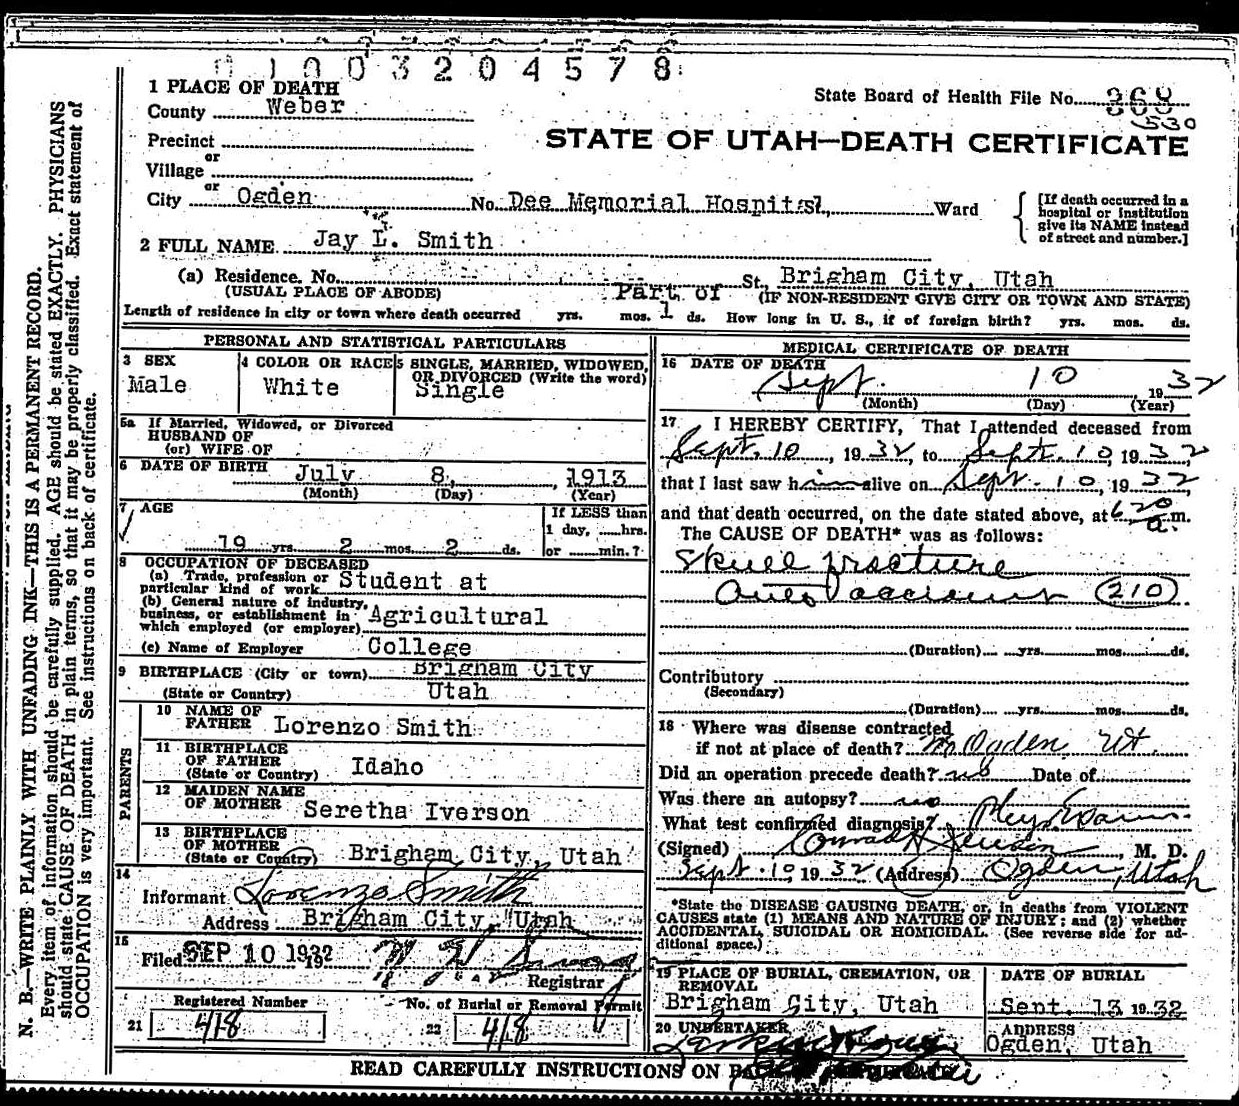 0 1 0 0 3 2 0 4 5 7 8
1 PLACE OF DEATH
County Weber
State Board of Health File No. 368
530
Precinct
STATE OF UTAH—DEATH CERTIFICATE
or
Village
or
City Ogden No. Dee Memorial Hospital, Ward
[If death occurred in a hospital or institution give its NAME instead of street and number.]
2 FULL NAME Jay L. Smith
(a) Residence. No. St, Brigham City, Utah
(USUAL PLACE OF ABODE) Part of (IF NON-RESIDENT GIVE CITY OR TOWN AND STATE)
Length of residence in city or town where death occurred yrs. mos. 1 ds. How long in U. S., if of foreign birth? yrs. mos. ds.
PERSONAL AND STATISTICAL PARTICULARS
3 SEX
Male
4 COLOR OR RACE
White
5 SINGLE, MARRIED, WIDOWED,
OR DIVORCED (Write the word)
Single
5a If Married, Widowed, or Divorced
HUSBAND OF
(or) WIFE OF
6 DATE OF BIRTH July 8, , 1913
(Month) (Day) (Year)
7 AGE
If LESS than
1 day, ......hrs.
19 yrs. 2 mos. 2 ds. or ......min.?
8 OCCUPATION OF DECEASED
(a) Trade, profession or
particular kind of work Student at
(b) General nature of industry,
business, or establishment in Agricultural
which employed (or employer)
(c) Name of Employer College
9 BIRTHPLACE (City or town) Brigham City
(State or Country) Utah
PARENTS
10 NAME OF
FATHER Lorenzo Smith
11 BIRTHPLACE
OF FATHER Idaho
(State or Country)
12 MAIDEN NAME
OF MOTHER Seretha Iverson
13 BIRTHPLACE
OF MOTHER
(State or Country) Brigham City, Utah
14
Informant Lorenzo Smith
Address Brigham City, Utah
15
Filed SEP 10 1932 192
Registrar
Registered Number
21 418
No. of Burial or Removal Permit
22 418
MEDICAL CERTIFICATE OF DEATH
16 DATE OF DEATH
Sept. 10 1932
(Month) (Day) (Year)
17 I HEREBY CERTIFY, That I attended deceased from
Sept. 10, 1932, to Sept. 10, 1932
that I last saw him alive on Sept. 10, 1932
and that death occurred, on the date stated above, at 6 20 a. m.
The CAUSE OF DEATH* was as follows:
Skull fracture
Auto accident (210)
(Duration) yrs. mos. ds.
Contributory
(Secondary)
(Duration) yrs. mos. ds.
18 Where was disease contracted
if not at place of death? Ogden Ut.
Did an operation precede death? no Date of
Was there an autopsy? no
What test confirmed diagnosis? Phys. Exam.
(Signed) Conrad H. Jenson, M. D.
Sept. 10, 1932 (Address) Ogden, Utah
*State the DISEASE CAUSING DEATH, or, in deaths from VIOLENT
CAUSES state (1) MEANS AND NATURE OF INJURY; and (2) whether
ACCIDENTAL, SUICIDAL OR HOMICIDAL. (See reverse side for ad-
ditional space.)
19 PLACE OF BURIAL, CREMATION, OR
REMOVAL
Brigham City, Utah
DATE OF BURIAL
Sept. 13, 1932
20 UNDERTAKER
ADDRESS
Ogden, Utah
READ CAREFULLY INSTRUCTIONS ON
N. B.—WRITE PLAINLY WITH UNFADING INK—THIS IS A PERMANENT RECORD.
Every item of information should be carefully supplied. AGE should be stated EXACTLY. PHYSICIANS
should state CAUSE OF DEATH in plain terms, so that it may be properly classified. Exact statement of
OCCUPATION is very important. See instructions on back of certificate.